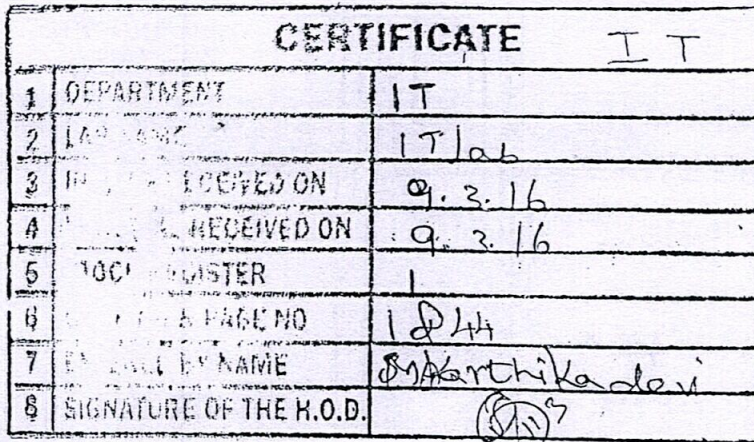 CERTIFICATE IT
1 DEPARTMENT IT
2 LAB NAME IT lab
3 RECEIVED ON 9.3.16
4 RECEIVED ON 9.3.16
5 REGISTER 1
6 PAGE NO 44
7 BY NAME Karthika devi
8 SIGNATURE OF THE H.O.D.